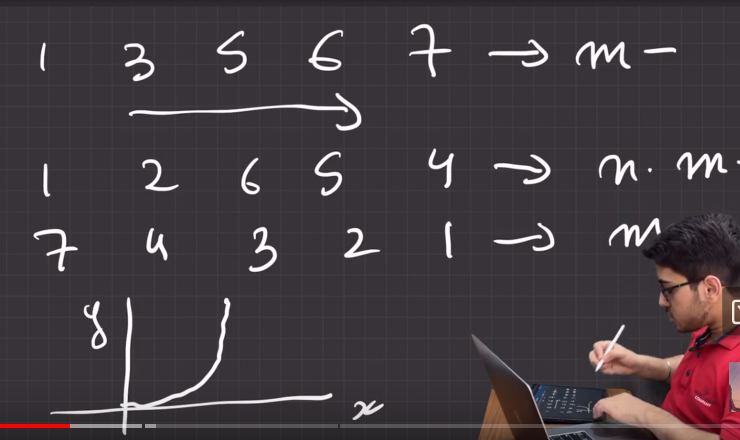 1 3 5 6 7 → m -
1 2 6 5 4 → n. m.
7 4 3 2 1 → m
y
x